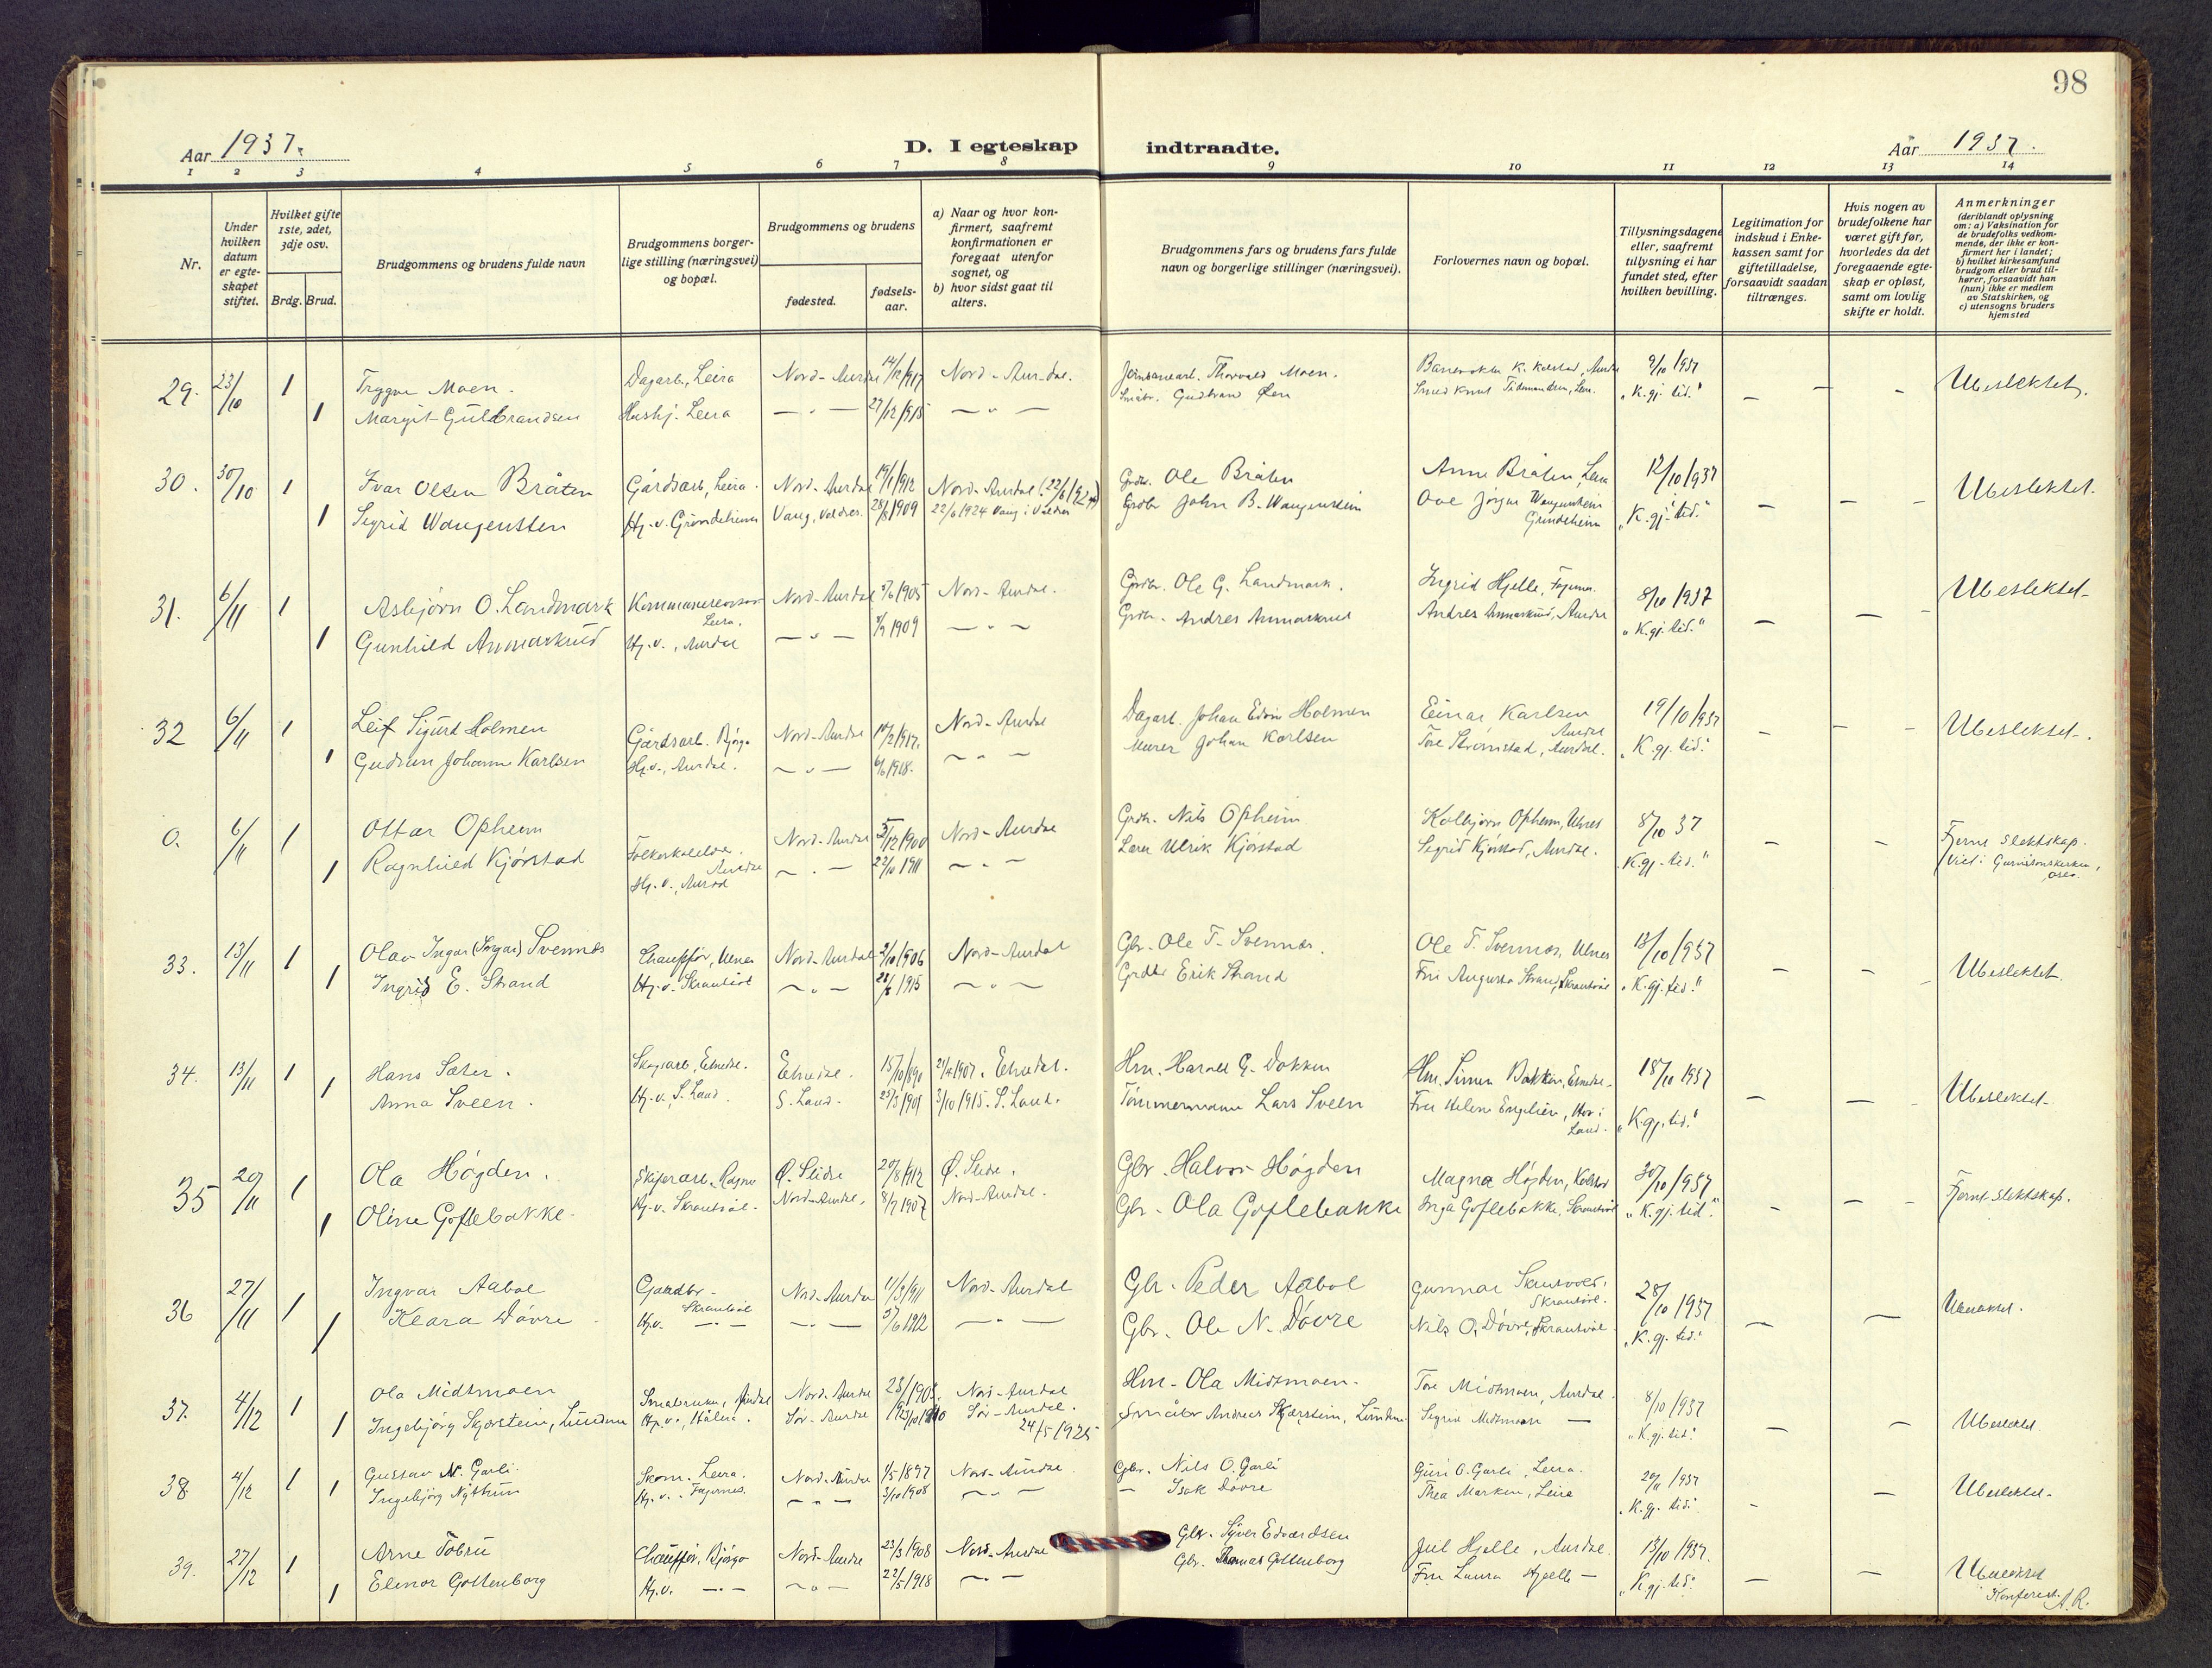 98
Aar 1937.
D. I egteskap indtraadte.
Aar 1937.
1 2 3 4 5 6 7 8 9 10 11 12 13 14
Nr.
Under hvilken datum er egteskapet stiftet.
Hvilket gifte 1ste, 2det, 3dje osv.
Brdg. Brud.
Brudgommens og brudens fulde navn
Brudgommens borgerlige stilling (næringsvei) og bopæl.
Brudgommens og brudens
fødested.
fødselsaar.
a) Naar og hvor konfirmert, saafremt konfirmationen er foregaat utenfor sognet, og
b) hvor sidst gaat til alters.
Brudgommens fars og brudens fars fulde navn og borgerlige stillinger (næringsvei).
Forlovernes navn og bopæl.
Tillysningsdagene eller, saafremt tillysning ei har fundet sted, efter hvilken bevilling.
Legitimation for indskud i Enkekassen samt for giftetilladelse, forsaavidt saadan tiltrænges.
Hvis nogen av brudefolkene har været gift før, hvorledes da det foregaaende egteskap er opløst, samt om lovlig skifte er holdt.
Anmerkninger
(deriblandt oplysning om: a) Vaksination for de brudefolks vedkommende, der ikke er konfirmert her i landet; b) hvilket kirkesamfund brudgom eller brud tilhører, forsaavidt han (hun) ikke er medlem av Statskirken, og c) utensogns bruders hjemsted
29. 23/10 1 Trygve Moen. Dagarb., Leira Nord-Aurdal 14/12 1917 Nord-Aurdal. Thorvald Moen. K. Kolstad, 9/10 1937 Ubeslektet.
1 Margit Gulbrandsen Hushj. Leira — " — 27/12 1915 — " — Småbr. Gudbrand Øen Smed Knut Tidemandsen, Leira "K. gj. tid."
30. 30/10 1 Ivar Olsen Bråten Gårdsarb., Leira. Nord-Aurdal 19/1 1912 Nord-Aurdal (22/6 1924) Grdbr. Ole Bråten Anne Bråten, Leira 12/10 1937 Ubeslektet.
1 Sigrid Wangensten Hj. v. Grindeheim Vang, Valdres. 28/8 1909 22/6 1924 Vang i Valdres Grdbr John B. Wangenstein Ove Jørgen Wangenstein Grindeheim "K. gj. tid."
31. 6/11 1 Asbjørn O. Landmark Kommunerevisor Leira. Nord-Aurdal 5/6 1905 Nord-Aurdal. Grdbr. Ole G. Landmark. Ingrid Hjelle, 8/10 1937 Ubeslektet.
1 Gunhild Anmarkrud Hj. v., Aurdal — " — 5/9 1909 — " — Grdbr. Andres Anmarkrud Andres Anmarkrud, Aurdal "K. gj. tid."
32 6/11 1 Leif Sigurd Holmen Gårdsarb. Bjørgo Nord-Aurdal 14/2 1917. Nord-Aurdal Dagarb. Johan Edvin Holmen Einar Karlsen Aurdal 19/10 1937 Ubeslektet.
1 Gudrun Johanne Karlsen Hj. v., Aurdal. — " — 6/6 1918. — " — Murer Johan Karlsen Tore Strømstad, Aurdal. "K. gj. tid."
0. 6/11 1 Ottar Opheim Folkeskolelær. Aurdal Nord-Aurdal 5/12 1900 Nord-Aurdal Grdbr. Nils Opheim Kolbjørn Opheim, Ulnes 8/10 37 Fjernt slektskap.
1 Ragnhild Kjørstad Hj. v., Aurdal — " — 22/10 1911 — " — Lærer Ulrik Kjørstad Sigrid Kjørstad, Aurdal. "K. gj. tid." Viet i Garnisonskirken, Oslo.
33. 13/11 1 Olav Ingar Svennes Chauffør, Ulnes Nord-Aurdal 2/10 1906 Nord-Aurdal Gbr. Ole T. Svennes. Ole T. Svennes, Ulnes 13/10 1937 Ubeslektet.
1 Ingrid E. Strand Hj. v. Skrautvål — " — 1915 — " — Grdbr Erik Strand Fru Augusta Strand, Skrautvål "K. gj. tid."
34. 13/11 1 Hans Sæter. Skogsarb., Etnedal. Etnedal. 15/10 1890 1907. Etnedal. Hm. Harald G. Dokken Hm. Simen Bakken, Etnedal. 18/10 1937 Ubeslektet.
1 Anna Sveen. Hj. v. S. Land. S. Land. 25/3 1901 3/10 1915. S. Land. Tømmermann Lars Sveen Fru Helene Engelien, Hov i Land. "K. gj. tid."
35 20/11 1 Ola Høgden. Skiferarb. Ø. Slidre 20/8 1912 Ø. Slidre. Gbr. Halvor Høgden Magna Høgden, 30/10 1937 Fjernt slektskap.
1 Oline Goflebakke. Hj. v. Skrautvål. Nord-Aurdal. 8/7 1907 Nord-Aurdal. Gbr. Ola Goflebakke Inga Goflebakke, Skrautvål "K. gj. tid."
36 27/11 1 Ingvar Aabol Gardbr. Skrautvål Nord-Aurdal 11/3 1911 Nord-Aurdal Gbr. Peder Aabol Gunnar Skrautvål. 28/10 1937 Ubeslektet.
1 Klara Døvre Hj. v. — " — — " — 1912 — " — Gbr. Ole N. Døvre Nils O. Døvre, Skrautvål "K. gj. tid."
37. 4/12 1 Ola Midtmoen Småbruker, Aurdal Nord-Aurdal 1905. Nord-Aurdal Hm. Ola Midtmoen. Tore Midtmoen, Aurdal. 8/10 1937 Ubeslektet
1 Ingebjørg Skjerstein, Hj. v., Sør-Aurdal 1910 Sør-Aurdal. 24/5 1925 Småbr Andreas Skjerstein, Sigrid Midtmoen — "K. gj. tid."
38 4/12 1 Gustav N. Garli. Skom. Leira. Nord-Aurdal 1/5 1897 Nord-Aurdal Gbr. Nils O. Garli Guri O. Garli, Leira. 20/11 1937 Ubeslektet.
1 Ingebjørg Nythun Hj. v. Fagernes. — " — 3/10 1908 — " — — Isak Døvre Thea Marken, Leira "K. gj. tid."
39. 27/12 1 Arne Tobru Chauffør, Bjørgo Nord-Aurdal 23/3 1908 Nord-Aurdal Gbr. Syver Edvardsen Jul Hjelle, Aurdal. 13/10 1937. Ubeslektet
1 Elenor Gottenborg Hj. v. — " — — " — 22/5 1918 — " — Gbr. Thomas Gottenborg Fru Laura Hjelle — "K. gj. tid." Konferert. A. R.